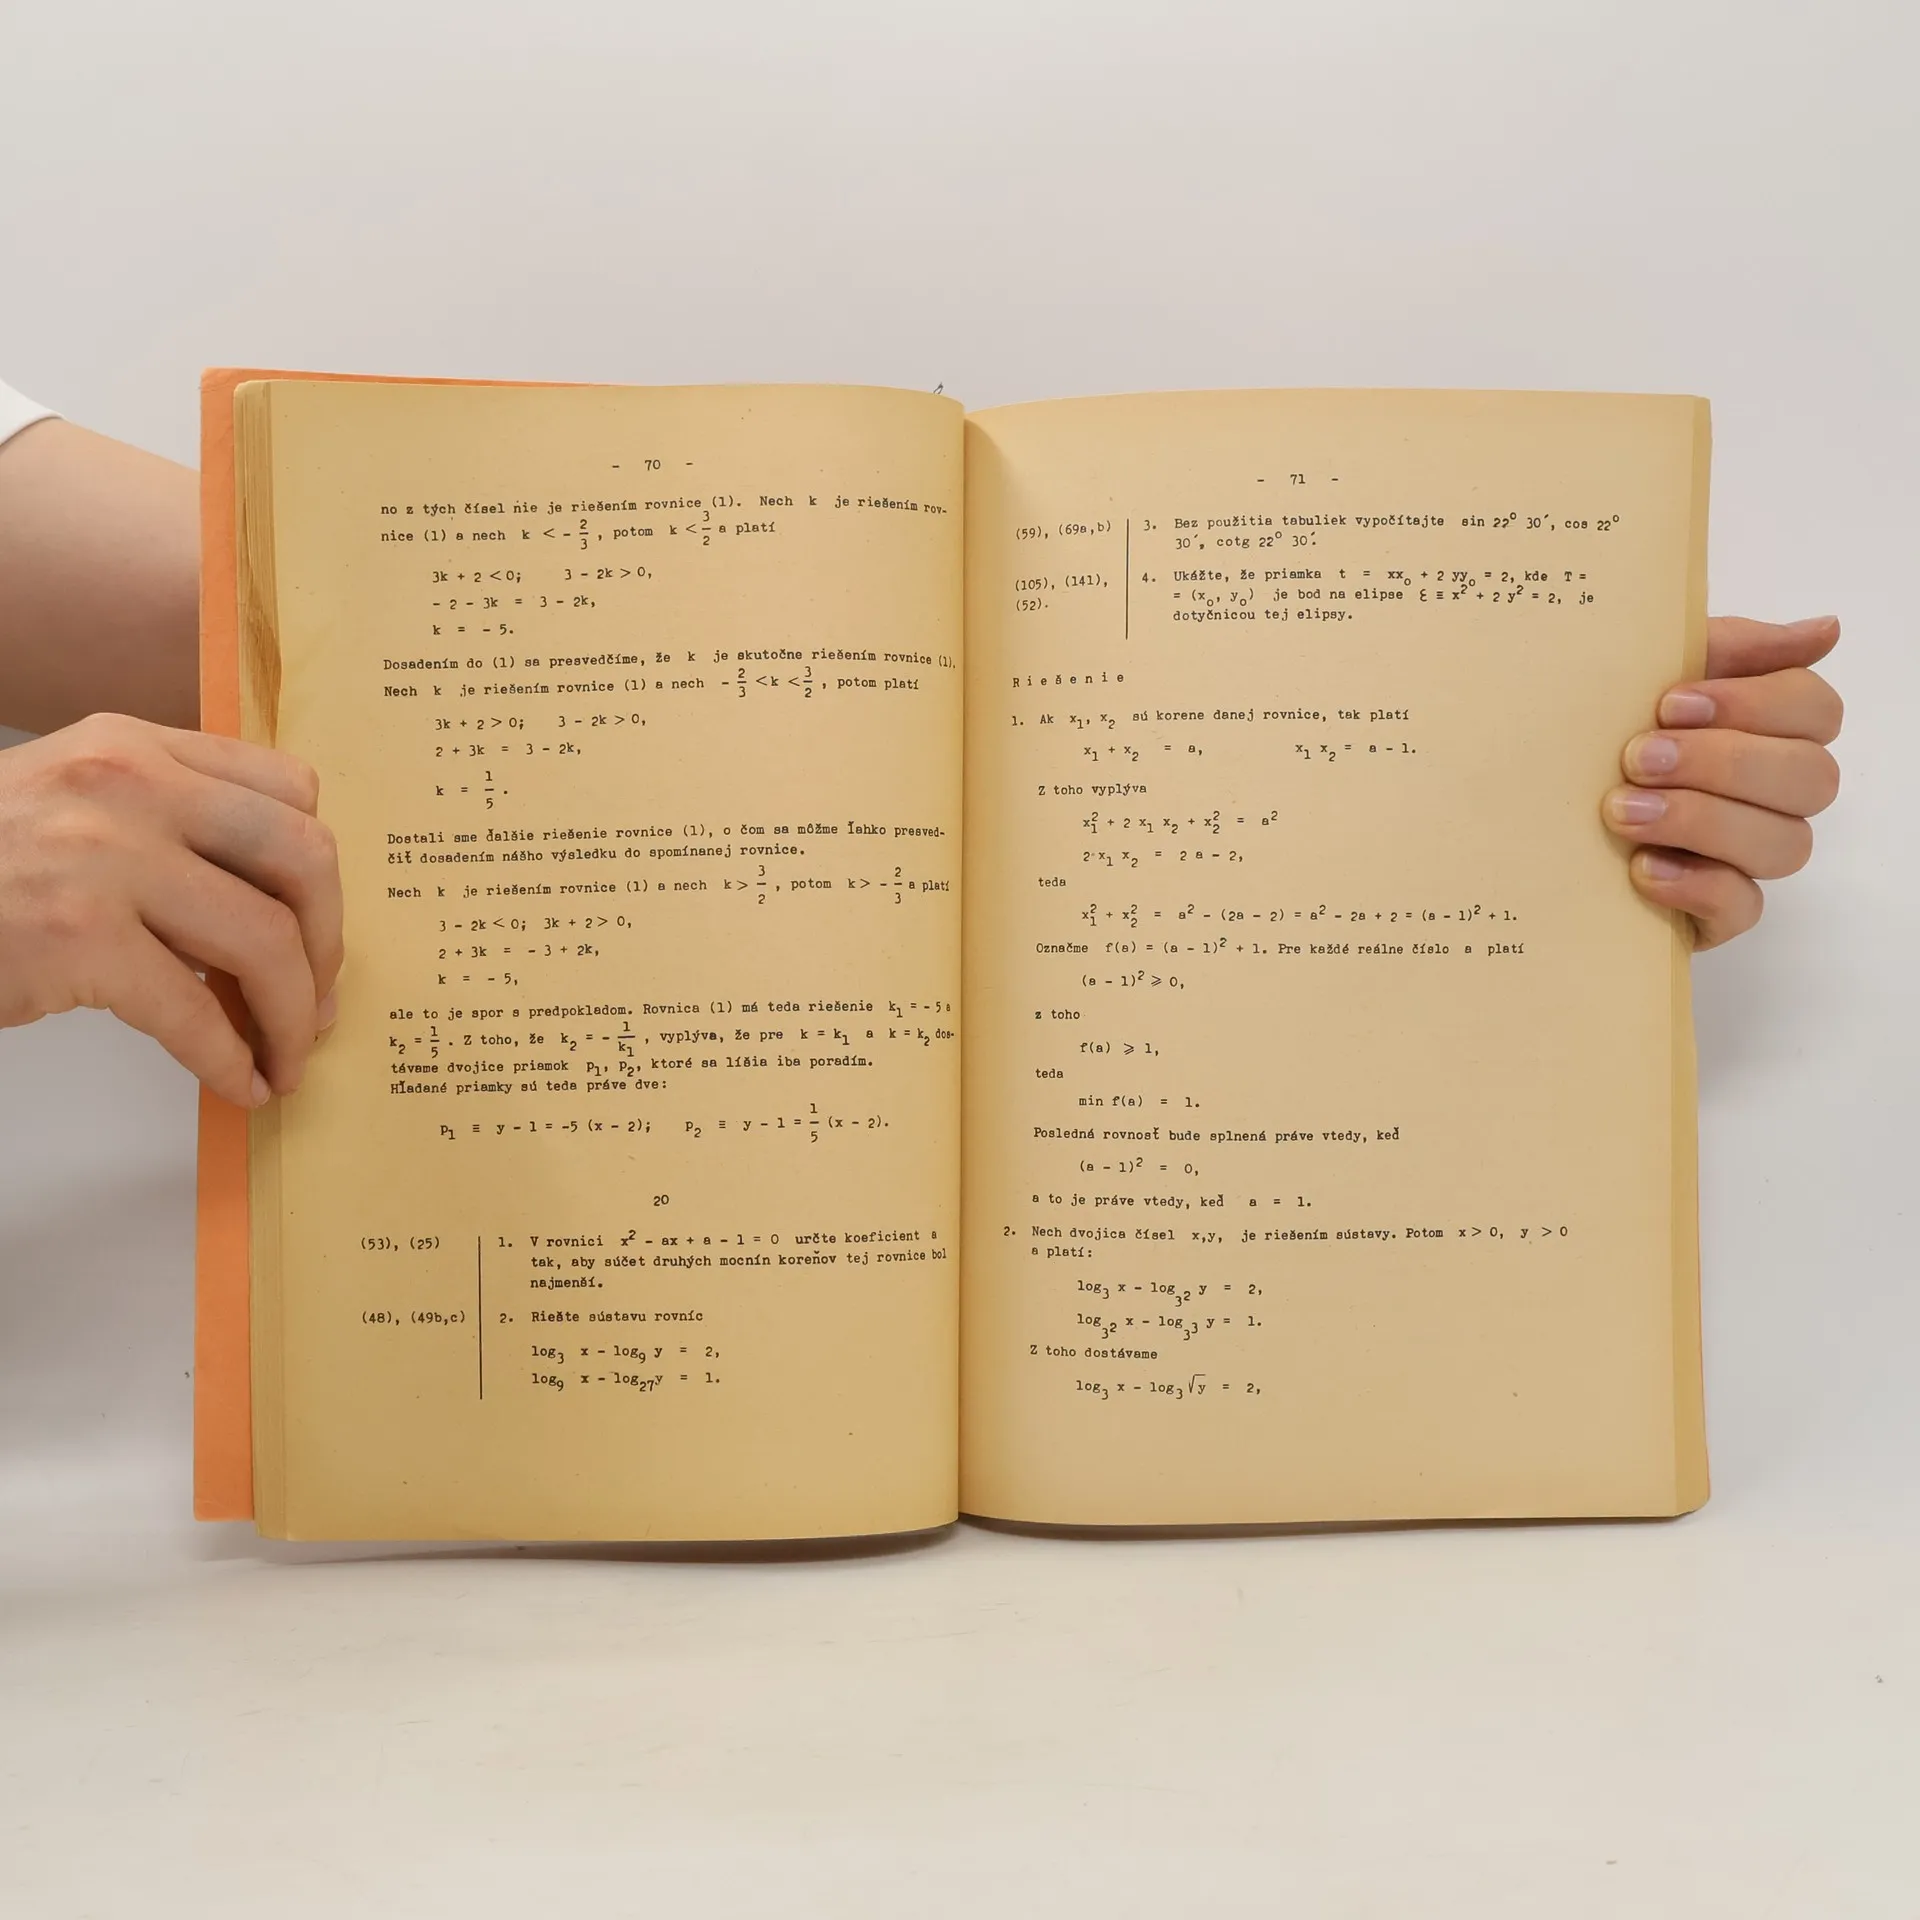 - 70 -
no z tých čísel nie je riešením rovnice (1). Nech k je riešením rov-
nice (1) a nech k < - 2/3 , potom k < 3/2 a platí
3k + 2 < 0; 3 - 2k > 0,
- 2 - 3k = 3 - 2k,
k = - 5.
Dosadením do (1) sa presvedčíme, že k je skutočne riešením rovnice (1).
Nech k je riešením rovnice (1) a nech - 2/3 < k < 3/2 , potom platí
3k + 2 > 0; 3 - 2k > 0,
2 + 3k = 3 - 2k,
k = 1/5 .
Dostali sme ďalšie riešenie rovnice (1), o čom sa môžme ľahko presved-
čiť dosadením nášho výsledku do spomínanej rovnice.
Nech k je riešením rovnice (1) a nech k > 3/2 , potom k > - 2/3 a platí
3 - 2k < 0; 3k + 2 > 0,
2 + 3k = - 3 + 2k,
k = - 5,
ale to je spor s predpokladom. Rovnica (1) má teda riešenie k₁ = - 5 a
k₂ = 1/5 . Z toho, že k₂ = - 1/k₁ , vyplýva, že pre k = k₁ a k = k₂ dos-
távame dvojice priamok p₁, p₂, ktoré sa líšia iba poradím.
Hľadané priamky sú teda práve dve:
p₁ ≡ y - 1 = -5 (x - 2); p₂ ≡ y - 1 = 1/5 (x - 2).
20
(53), (25) 1. V rovnici x² - ax + a - 1 = 0 určte koeficient a
tak, aby súčet druhých mocnín koreňov tej rovnice bol
najmenší.
(48), (49b,c) 2. Riešte sústavu rovníc
log₃ x - log₉ y = 2,
log₉ x - log₂₇y = 1.
- 71 -
(59), (69a,b) 3. Bez použitia tabuliek vypočítajte sin 22° 30´, cos 22°
30´, cotg 22° 30´.
(105), (141), 4. Ukážte, že priamka t = xx₀ + 2 yy₀ = 2, kde T =
(52). = (x₀, y₀) je bod na elipse ℰ ≡ x² + 2 y² = 2, je
dotyčnicou tej elipsy.
Riešenie
1. Ak x₁, x₂ sú korene danej rovnice, tak platí
x₁ + x₂ = a, x₁ x₂ = a - 1.
Z toho vyplýva
x₁² + 2 x₁ x₂ + x₂² = a²
2 x₁ x₂ = 2 a - 2,
teda
x₁² + x₂² = a² - (2a - 2) = a² - 2a + 2 = (a - 1)² + 1.
Označme f(a) = (a - 1)² + 1. Pre každé reálne číslo a platí
(a - 1)² ⩾ 0,
z toho
f(a) ⩾ 1,
teda
min f(a) = 1.
Posledná rovnosť bude splnená práve vtedy, keď
(a - 1)² = 0,
a to je práve vtedy, keď a = 1.
2. Nech dvojica čísel x,y, je riešením sústavy. Potom x > 0, y > 0
a platí:
log₃ x - log₃² y = 2,
log₃² x - log₃³ y = 1.
Z toho dostávame
log₃ x - log₃ √y = 2,